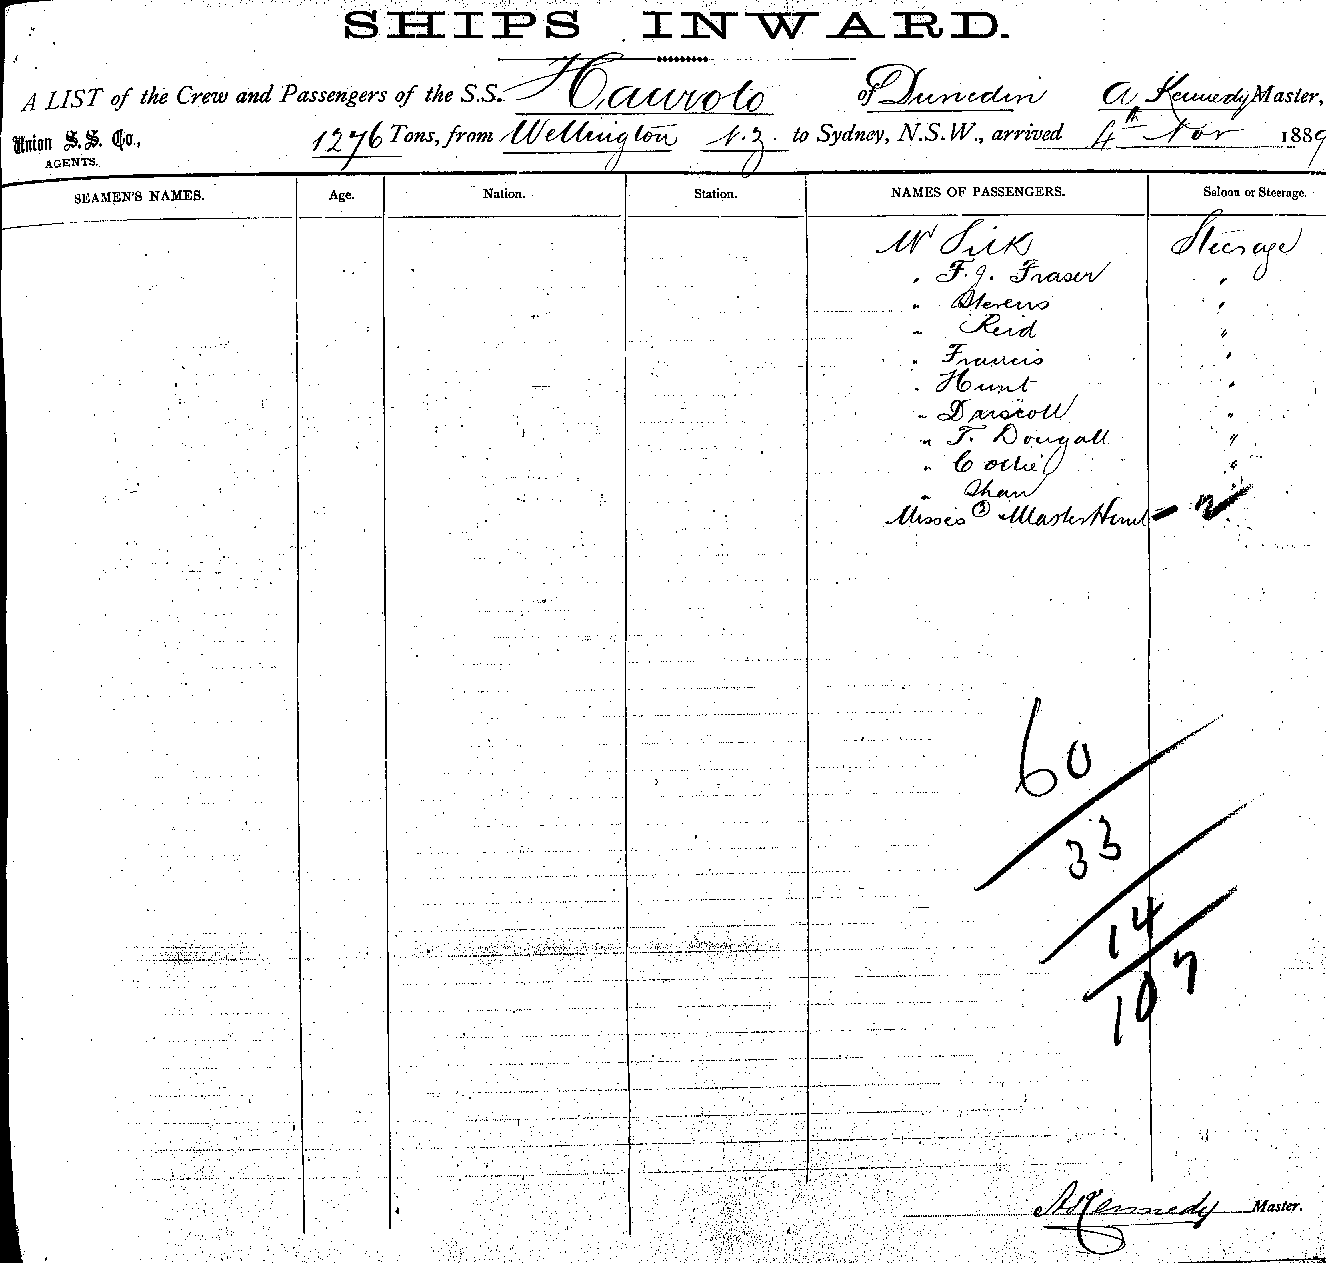 SHIPS INWARD.
A LIST of the Crew and Passengers of the S.S. Hauroto of Dunedin A Kennedy Master,
Union S. S. Co., AGENTS. 1276 Tons, from Wellington N.Z. to Sydney, N.S.W., arrived 4th Nov 1889
SEAMEN'S NAMES. Age. Nation. Station. NAMES OF PASSENGERS. Saloon or Steerage.
Mr Silk Steerage
" F. J. Fraser "
" Stevens "
" Reid "
" Francis "
" Hunt "
" Driscoll "
" T. Dougall "
" "
" Shaw "
Misses (2) Master Hunt
60
33
14
107
A Kennedy Master.